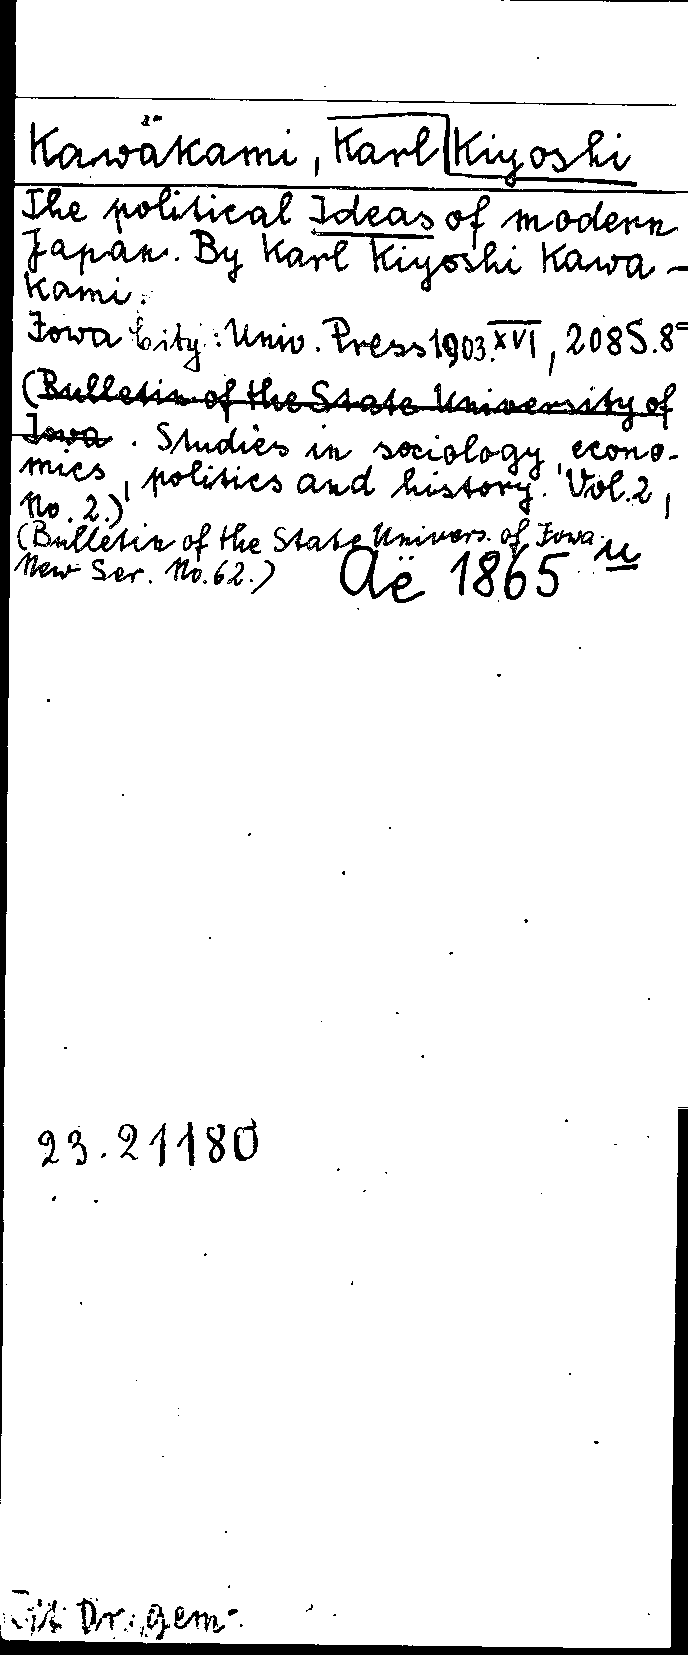 Kawakami, Karl Kiyoshi
The political Ideas of modern
Japan. By Karl Kiyoshi Kawa-
kami.
Iowa City: Univ. Press 1903. XVI, 208 S. 8°
(Bulletin of the State University of
Iowa. Studies in sociology, econo-
mics, politics and history. Vol. 2,
No. 2.)
(Bulletin of the State Univers. of Iowa.
New Ser. No. 62.) Aë 1865 u
23.21180
Dr. gem.